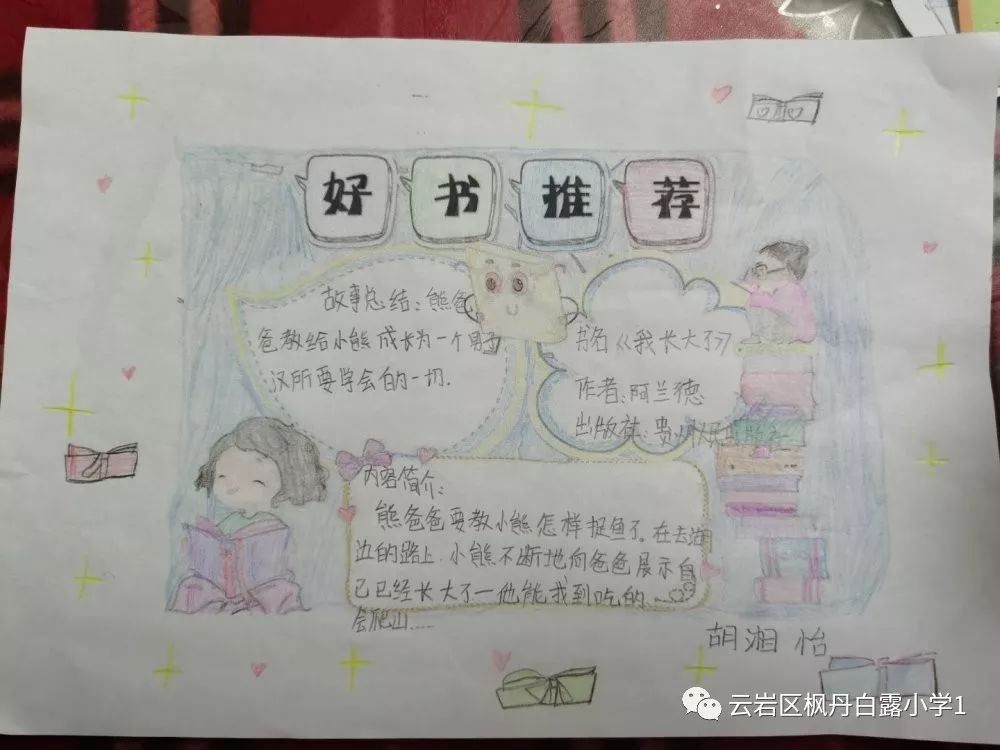 好书推荐
故事总结：熊爸
爸教给小熊成长为一个男子
汉所要学会的一切.
书名《我长大了》
作者：阿兰德
出版社：贵州人民出版社
内容简介：
熊爸爸要教小熊怎样捉鱼了。在去湖
边的路上.小熊不断地向爸爸展示自
己已经长大了—他能找到吃的、
会爬山……
胡湘怡
云岩区枫丹白露小学1